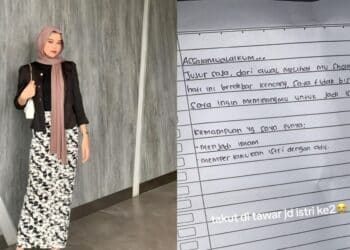 Assalamualaikum...
Jujur saja, dari awal melihat mu
hati ini berdebar kencang, saya tidak bis
saya ingin meminangmu untuk jadi is
Kemampuan yg saya punya:
- menjadi imam
- memperlakukan istri dengan
takut di tawar jd istri ke2😭